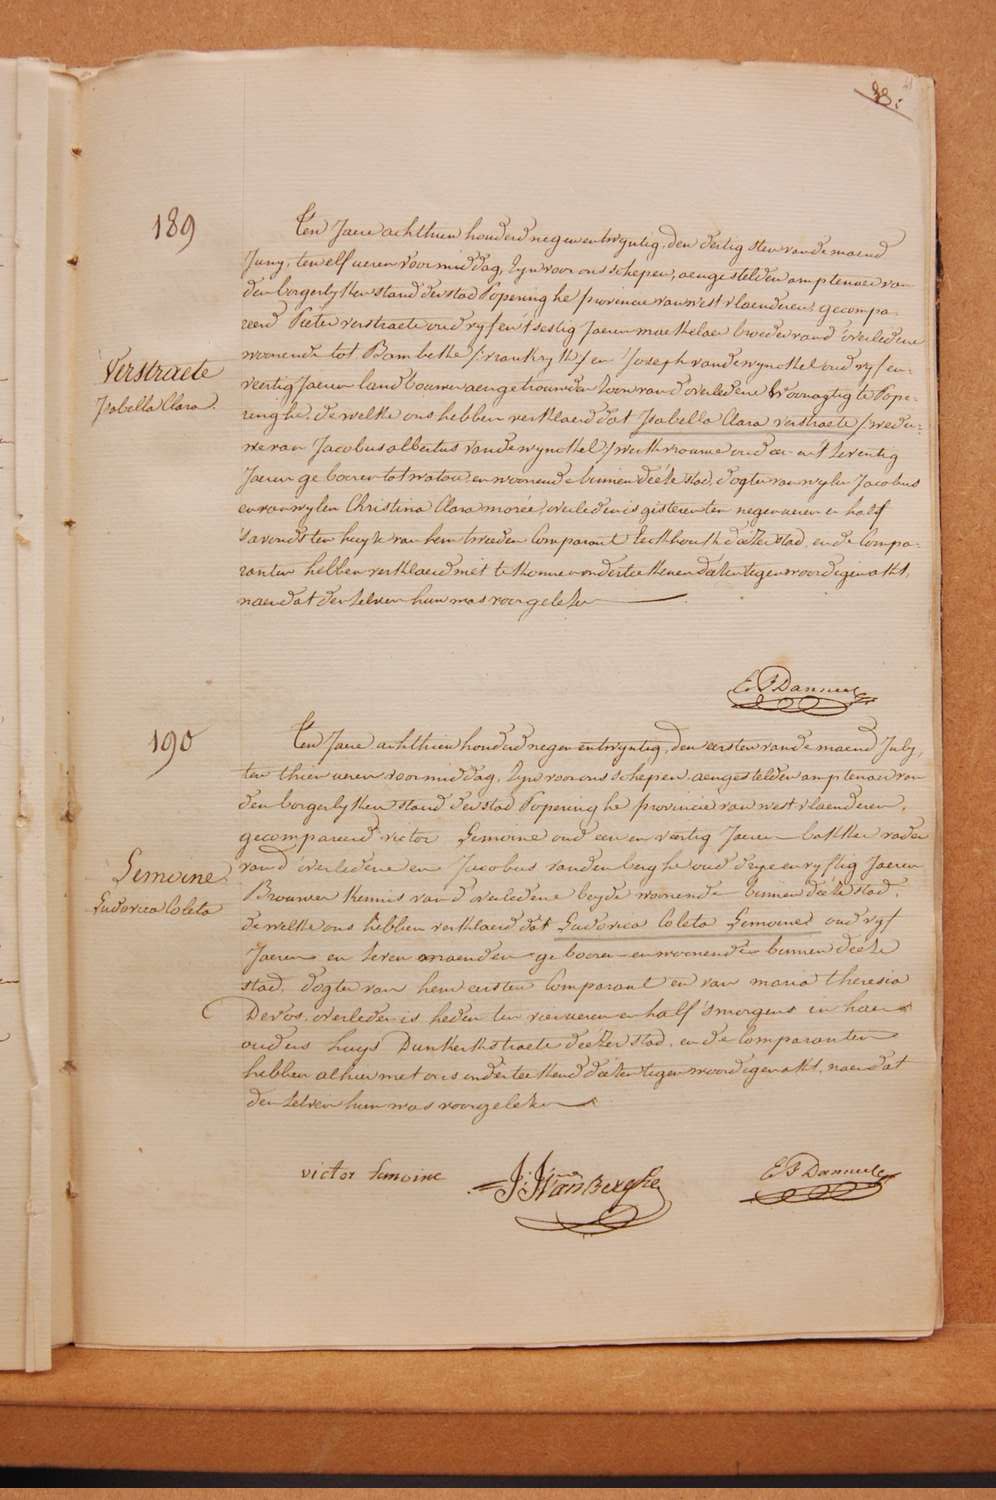 33:
189
Ten Jaere achthien honderd negen en twyntig, den dertig sten van de maend
Juny, ten elf ueren voormiddag, Zyn voor ons schepen, aengestelden amptenaer van
den borgerlyken stand der stad Poperinghe provincie van westvlaenderen, gecompa-
reerd Pieter verstraete oud vyf en 'tsestig Jaeren maekelaer broeder van d'overledene
woonende tot Bambeke /:vrankryk/ en Joseph vandewynckel oud vyf en-
Verstraete
Isabella Clara.
veertig Jaeren landbouwer aengetrouwden zoon van d'overledene woonagtig te Pope-
ringhe, de welke ons hebben verklaerd dat Isabella Clara verstraete /wedu-
we van Jacobus albertus vandewynckel/ werkvrouwe oud en 't seventig
Jaeren geboren tot watou, en woonende binnen deéze stad, dogter van wylen Jacobus
en van wylen Christina Clara morée, overleden is gisteren ten negen ueren en half
's avonds ten huyze van hem tweeden Comparant Eeckhoutk deézer stad, en de Compa-
ranten hebben verklaerd niet te konnen onderteekenen dézen tegenwoordigen akt,
naer dat den zelven hun was voorgelezen
E F Danneel
190
Ten Jaere achthien honderd negen en twyntig, den eersten van de maend July,
ten thien ueren voormiddag, Zyn voor ons schepen aengestelden amptenaer van
den borgerlyken stand der stad Poperinghe provincie van westvlaenderen,
gecompareerd victor Lemoine oud een en veertig Jaeren bakker vader
Lemoine
Ludovica Coleta
van d'overledene en Jacobus vandenberghe oud drye en vyftig Jaeren
Brouwer kennis van d'overledene beyde woonende binnen deéze stad,
de welke ons hebben verklaerd dat Ludovica Coleta Lemoine oud vyf
Jaeren en zeven maenden geboren en woonende binnen deéze
stad, dogter van hem eersten Comparant en van maria theresia
Devos, overleden is heden ten vier ueren en half 's morgens in haer
ouders huys Dunkerkstraete deézer stad, en de Comparanten
hebben alhier met ons onderteekend deézen tegenwoordigen akt, naer dat
den zelven hun was voorgelezen
victor lemoine
J: J: Van Berghe
E F Danneel